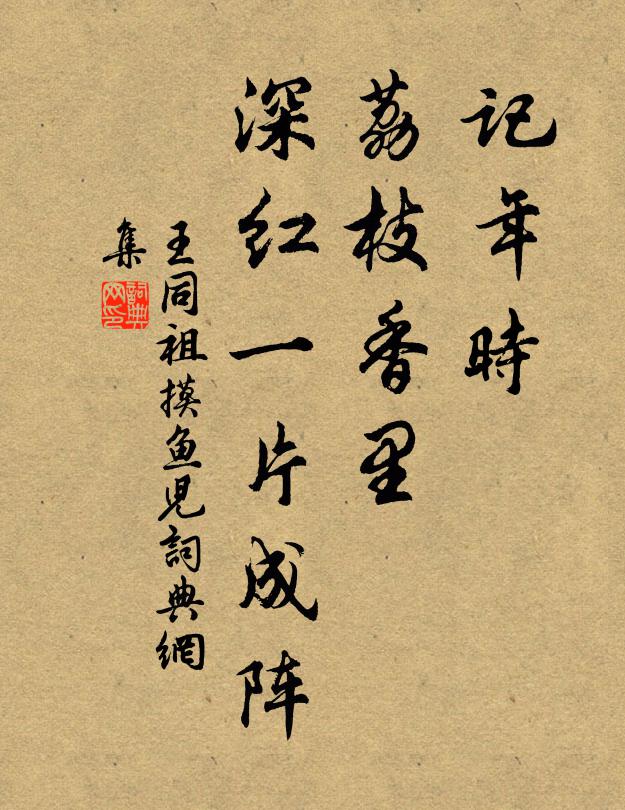 记年時
荔枝香里
深红一片成阵
王同祖摸鱼児詞典網
集
詞典
网印